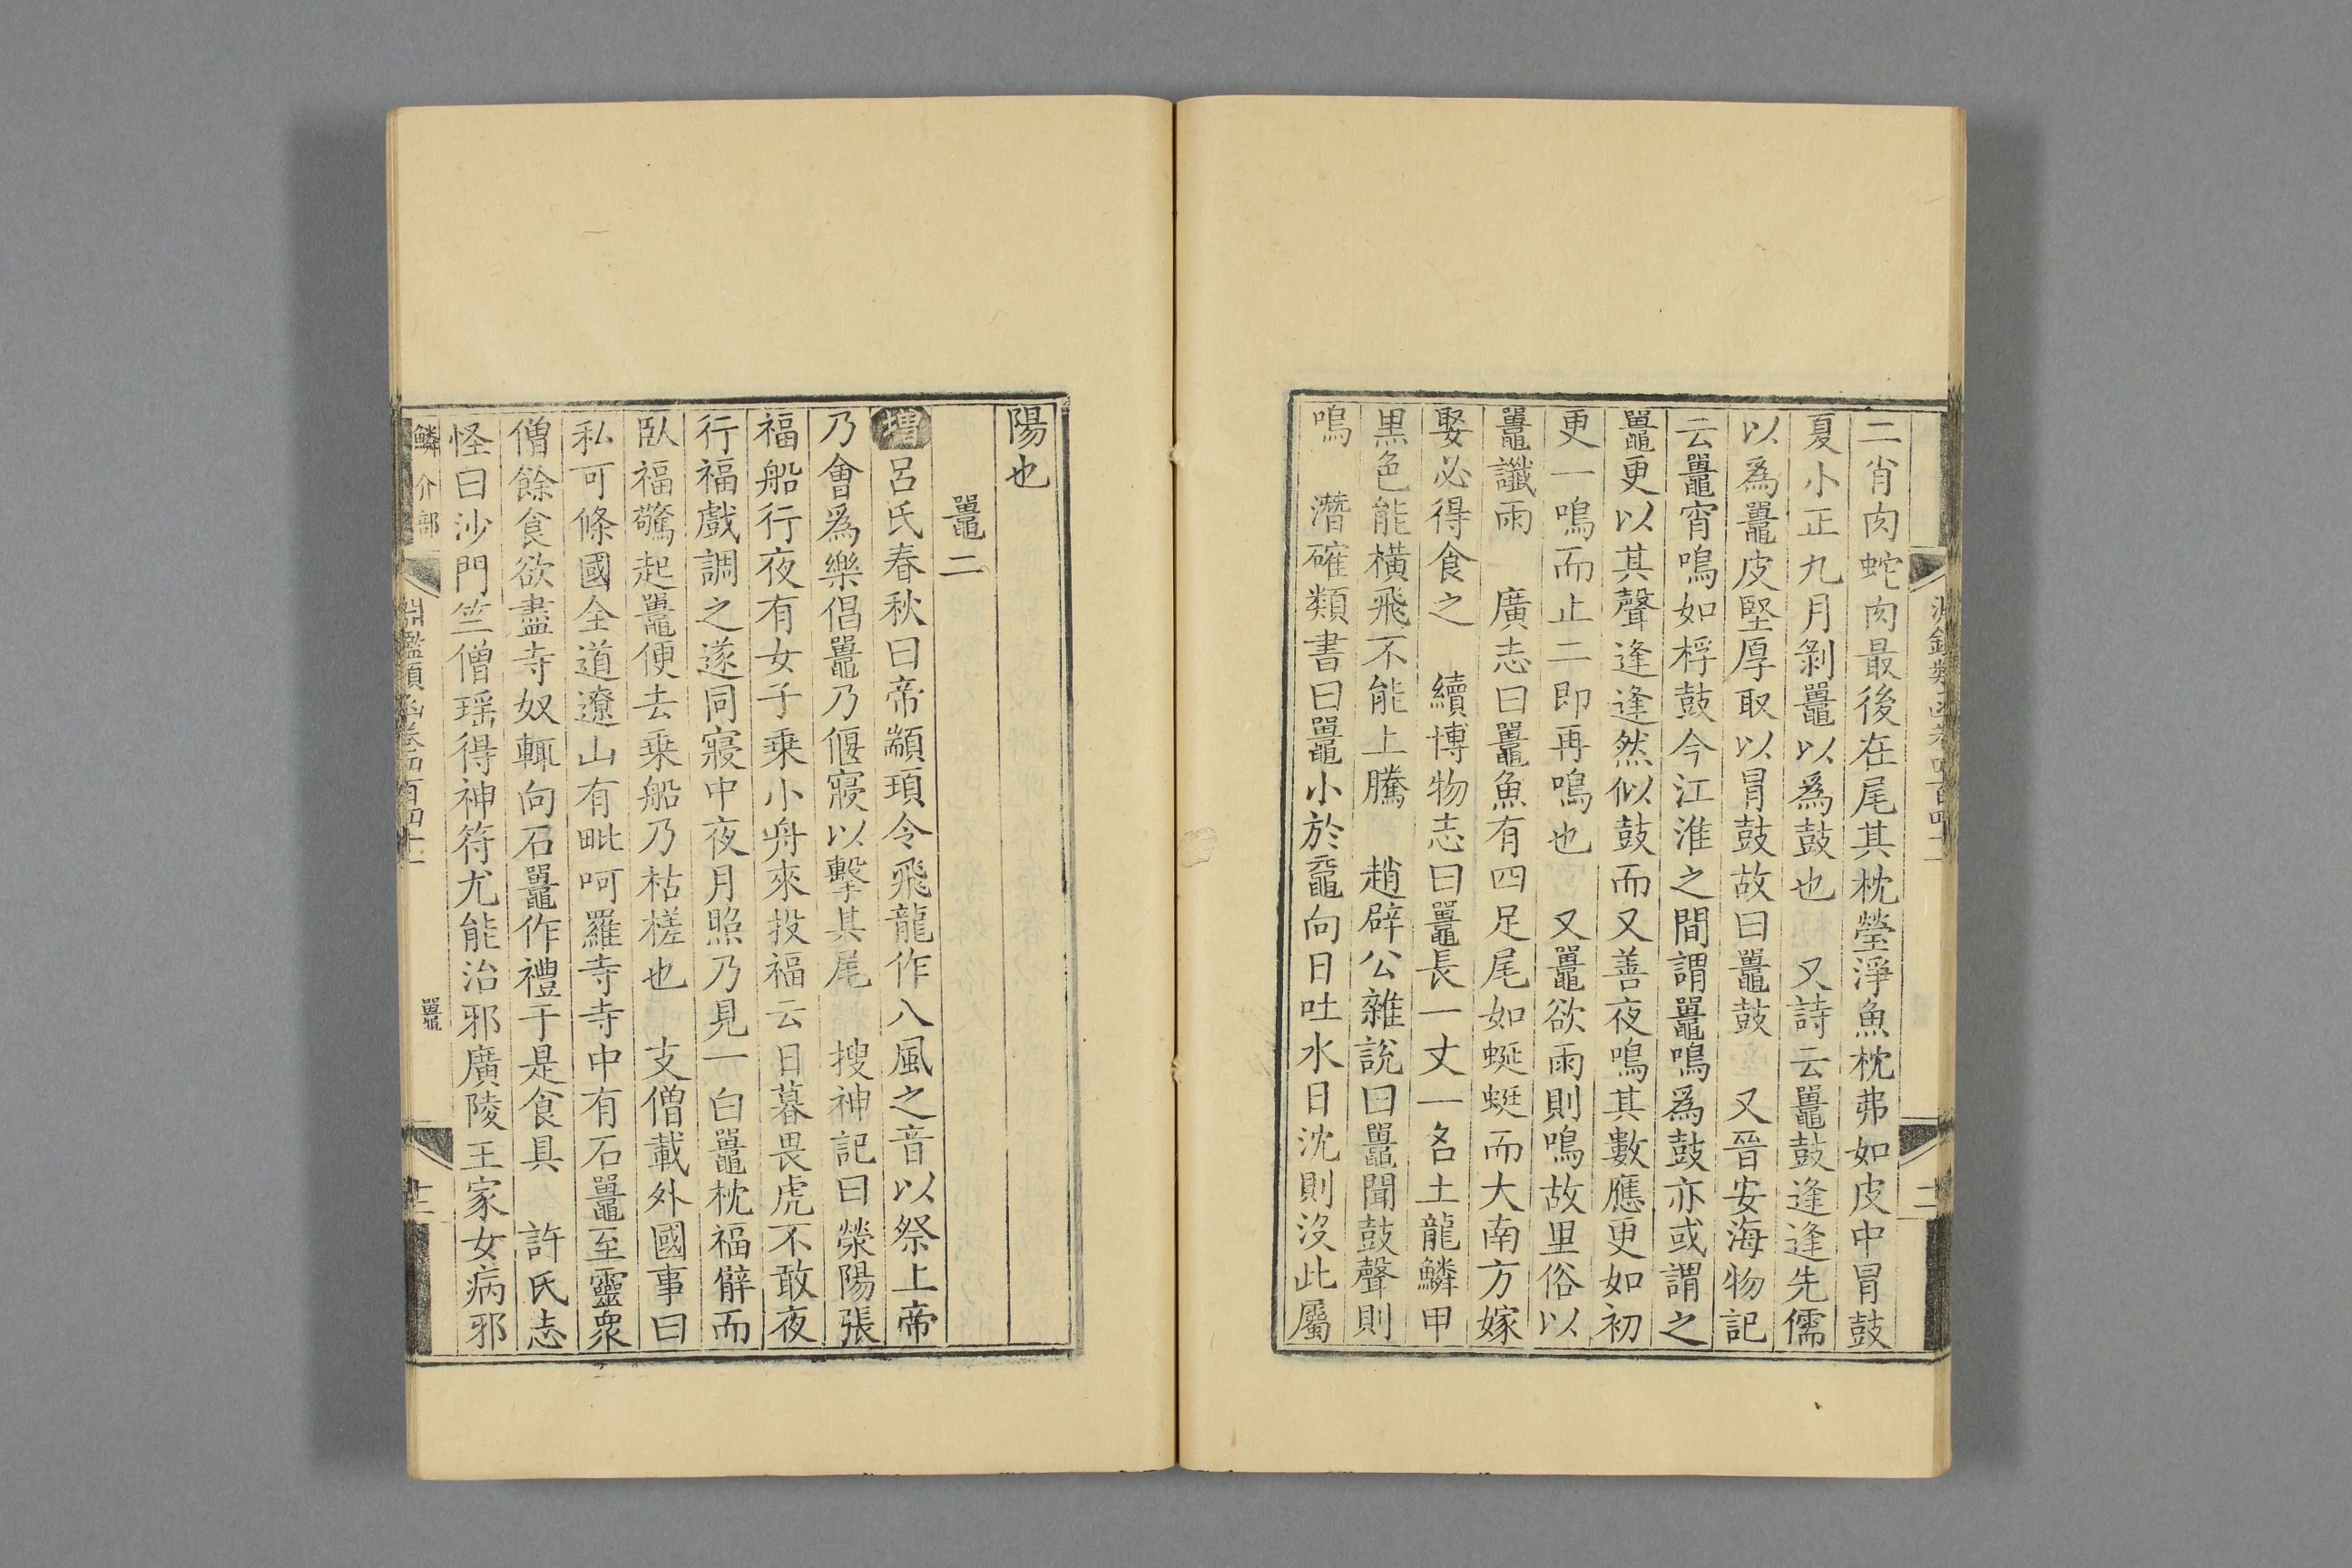 二肖肉蛇肉最後在尾其枕瑩淨魚枕弗如皮中冒鼓
夏小正九月剝鼉以爲鼓也　又詩云鼉鼓逢逢先儒
以爲鼉皮堅厚取以冒鼓故曰鼉鼓　又晉安海物記
云鼉宵鳴如桴鼓今江淮之間謂鼉鳴爲鼓亦或謂之
鼉更以其聲逢逢然似鼓而又善夜鳴其數應更如初
更一鳴而止二即再鳴也　又鼉欲雨則鳴故里俗以
鼉讖雨　廣志曰鼉魚有四足尾如蝘蜓而大南方嫁
娶必得食之　續博物志曰鼉長一丈一名土龍鱗甲
黒色能橫飛不能上騰　趙辟公雜說曰鼉聞鼓聲則
鳴　潛確類書曰鼉小於黿向日吐水日沈則沒此屬
陽也
鼉二
增呂氏春秋曰帝顓頊令飛龍作八風之音以祭上帝
乃會爲樂倡鼉乃偃寢以擊其尾　搜神記曰滎陽張
福船行夜有女子乗小舟來投福云日暮畏虎不敢夜
行福戲調之遂同寢中夜月照乃見一白鼉枕福臂而
臥福驚起鼉便去乗船乃枯槎也　支僧載外國事曰
私可條國全道遼山有毗呵羅寺寺中有石鼉至靈衆
僧餘食欲盡寺奴輒向石鼉作禮于是食具　許氏志
怪曰沙門竺僧瑶得神符尤能治邪廣陵王家女病邪
鱗介部
淵鑑類函卷四百四十一
鼉